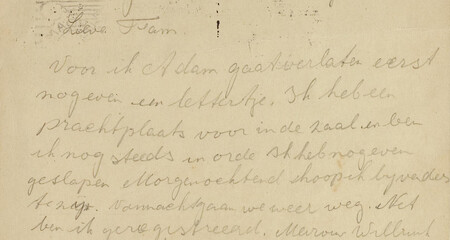 Lieve Fam.
Voor ik A dam gaat verlaten eerst
nog even een lettertje. Ik heb een
prachtplaats voor in de zaal en ben
ik nog steeds in orde Ik heb nog even
geslapen Morgenochtend hoop ik bij vaders
te zijn. Vannacht gaan we weer weg. Net
ben ik geregistreerd.